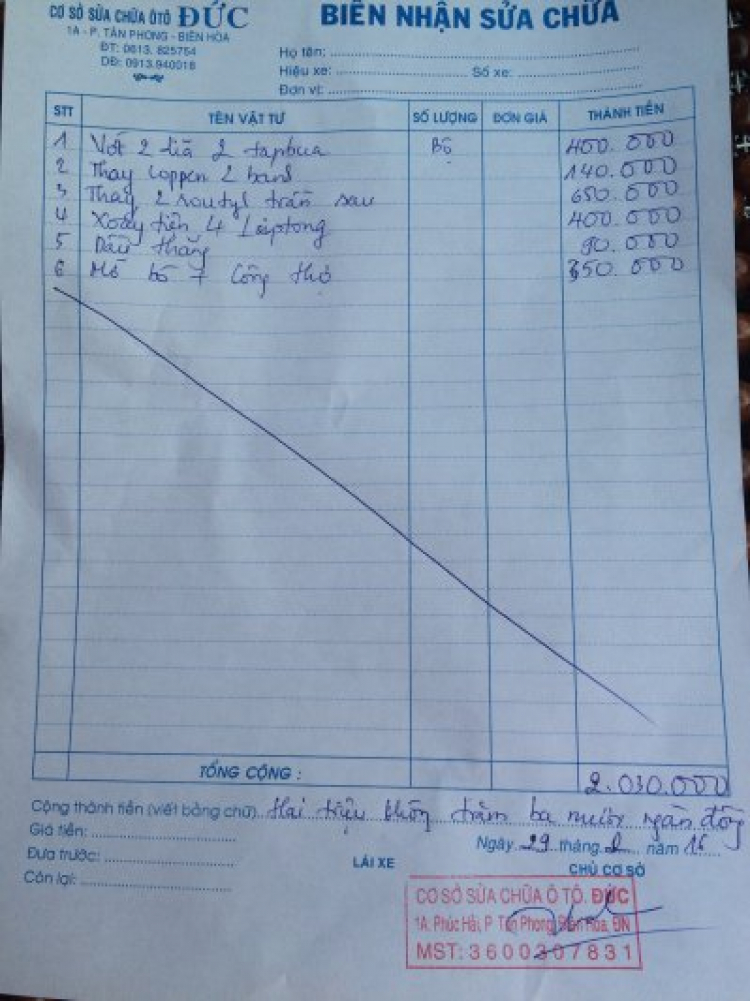 CƠ SỞ SỬA CHỮA ÔTÔ ĐỨC
1A - P. TÂN PHONG - BIÊN HÒA
ĐT: 0613. 825754
DĐ: 0913.940016
BIÊN NHẬN SỬA CHỮA
Họ tên:
Hiệu xe: Số xe:
Đơn vị:
STT TÊN VẬT TƯ SỐ LƯỢNG ĐƠN GIÁ THÀNH TIỀN
1 Vớt 2 dĩa 2 tapbua Bộ 400.000
2 Thay cuppen 2 banh 140.000
3 Thay 2 routyl trấn sau 650.000
4 tiện 4 400.000
5 Dầu thắng 90.000
6 Mỡ bò + Công thợ 350.000
TỔNG CỘNG : 2.030.000
Cộng thành tiền (viết bằng chữ) Hai triệu không trăm ba mươi ngàn đồng
Giá tiền:
Đưa trước:
Còn lại:
Ngày 29 tháng 2 năm 16
LÁI XE CHỦ CƠ SỞ
CƠ SỞ SỬA CHỮA Ô TÔ. ĐỨC
1A. Phúc Hải, P Tân Phong, Biên Hòa, ĐN
MST: 3600307831